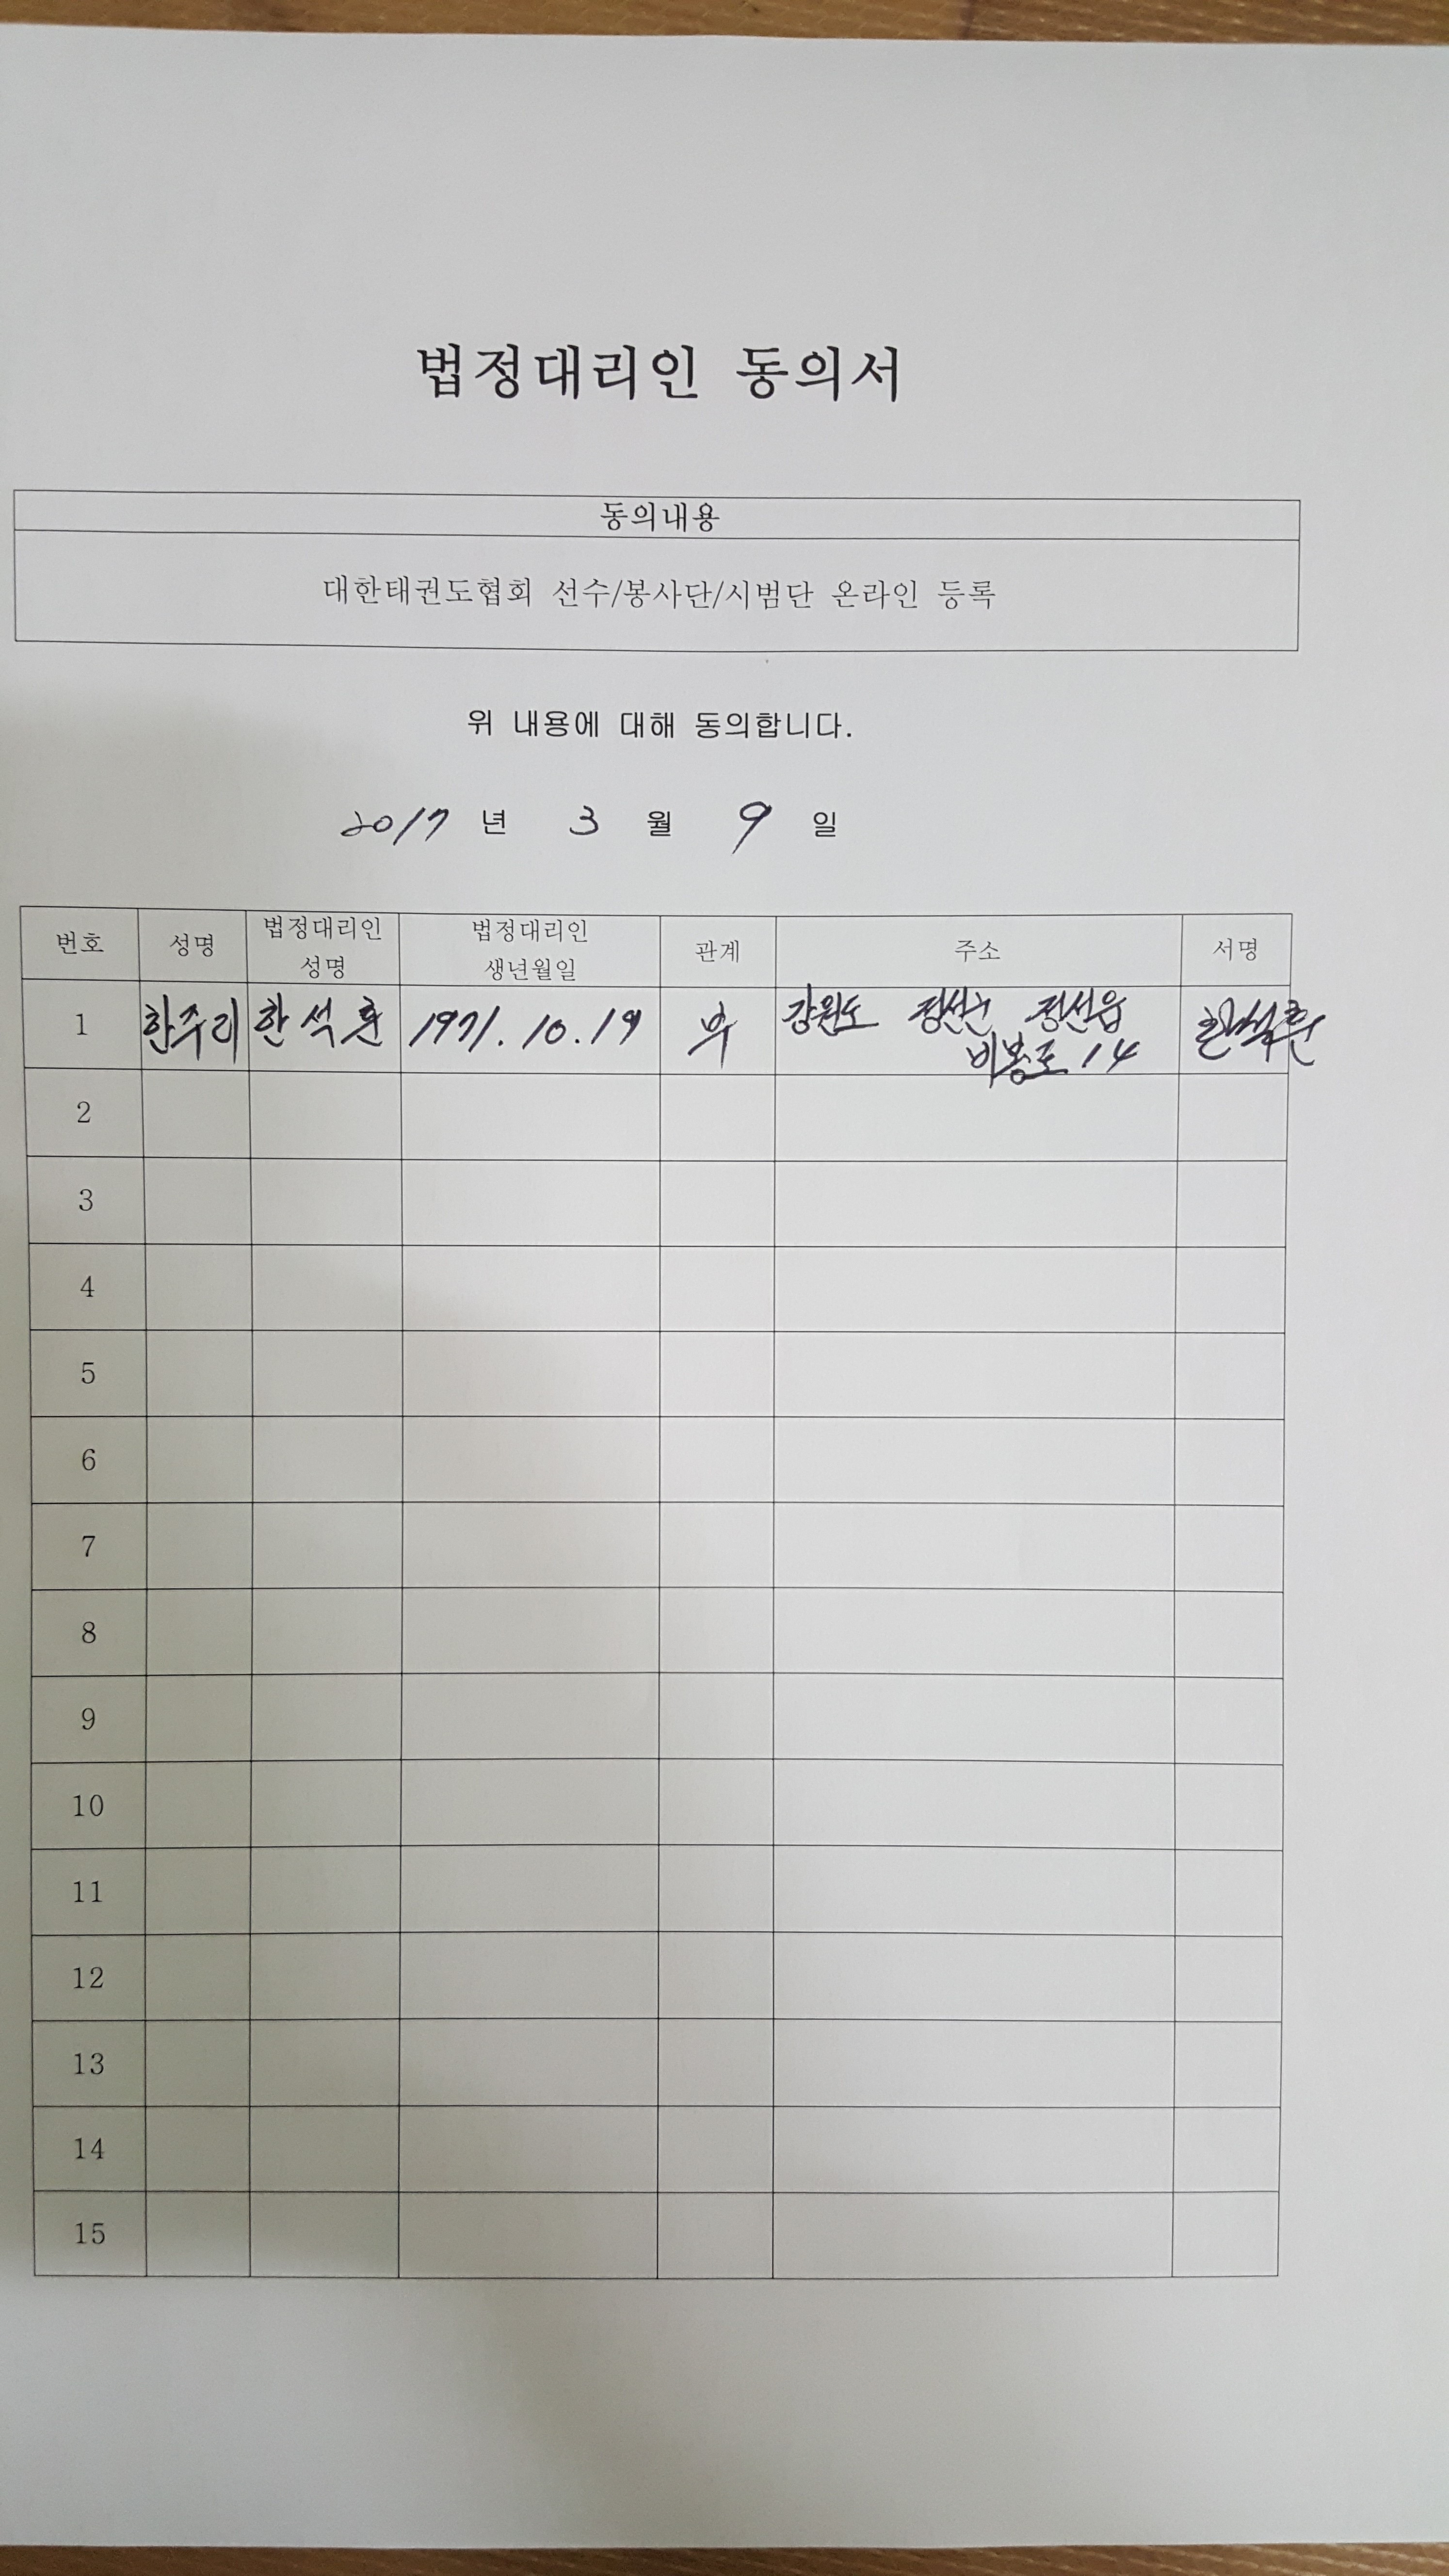 법정대리인 동의서
동의내용
대한태권도협회 선수/봉사단/시범단 온라인 등록
위 내용에 대해 동의합니다.
2017 년 3 월 9 일
번호 성명 법정대리인 성명 법정대리인 생년월일 관계 주소 서명
1 한주리 한석훈 1971. 10. 19 부 강원도 정선군 정선읍 한석훈
비봉로 14
2
3
4
5
6
7
8
9
10
11
12
13
14
15